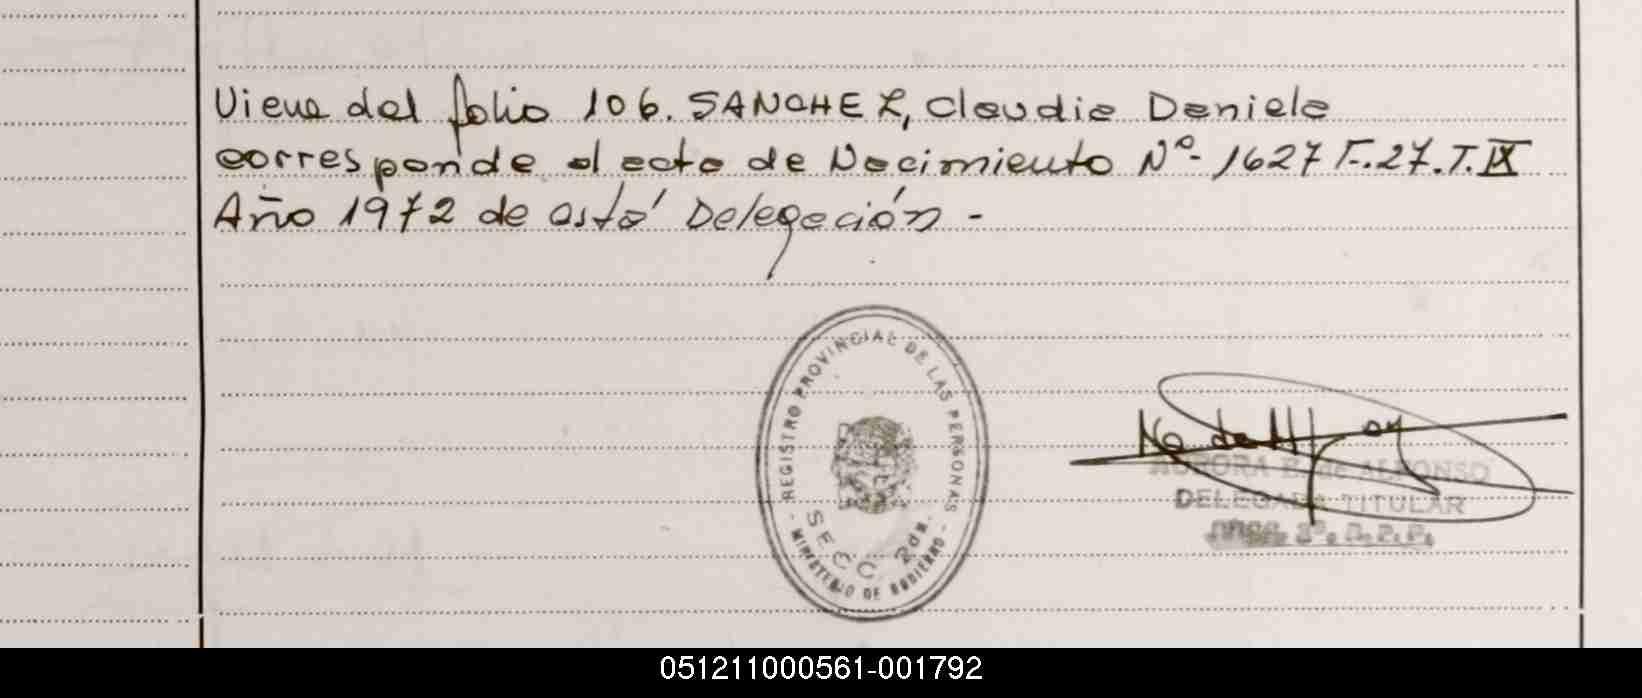 Viene del folio 106. SANCHEZ, Claudia Daniela
corresponde al acta de Nacimiento Nº 1627 F.27.T.IX
Año 1972 de está Delegación -
REGISTRO PROVINCIAL DE LAS PERSONAS
SECC 2da.
- MINISTERIO DE GOBIERNO -
AURORA E. de ALFONSO
DELEGADA TITULAR
051211000561-001792